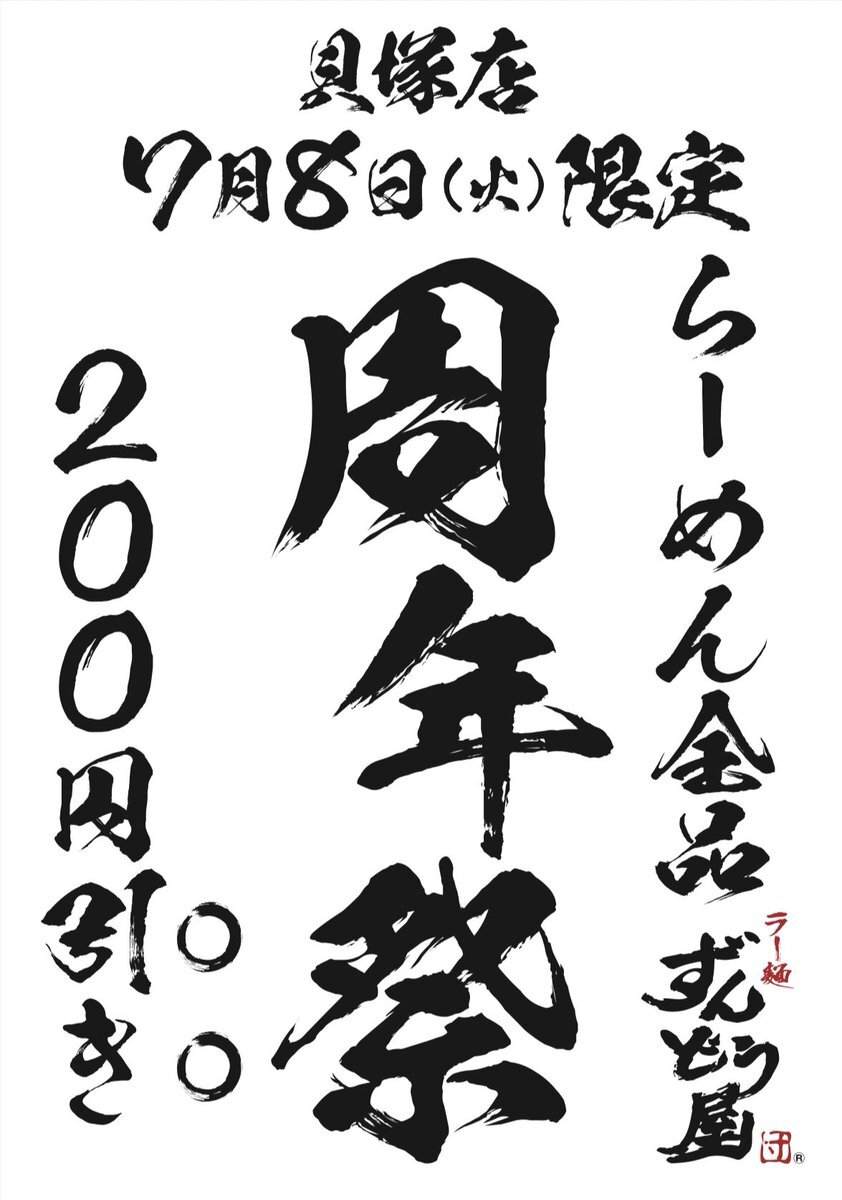 貝塚店
7月8日(火)限定
らーめん全品
周年祭
200円引き
○○
ラー麺
ずんどう屋
団
®